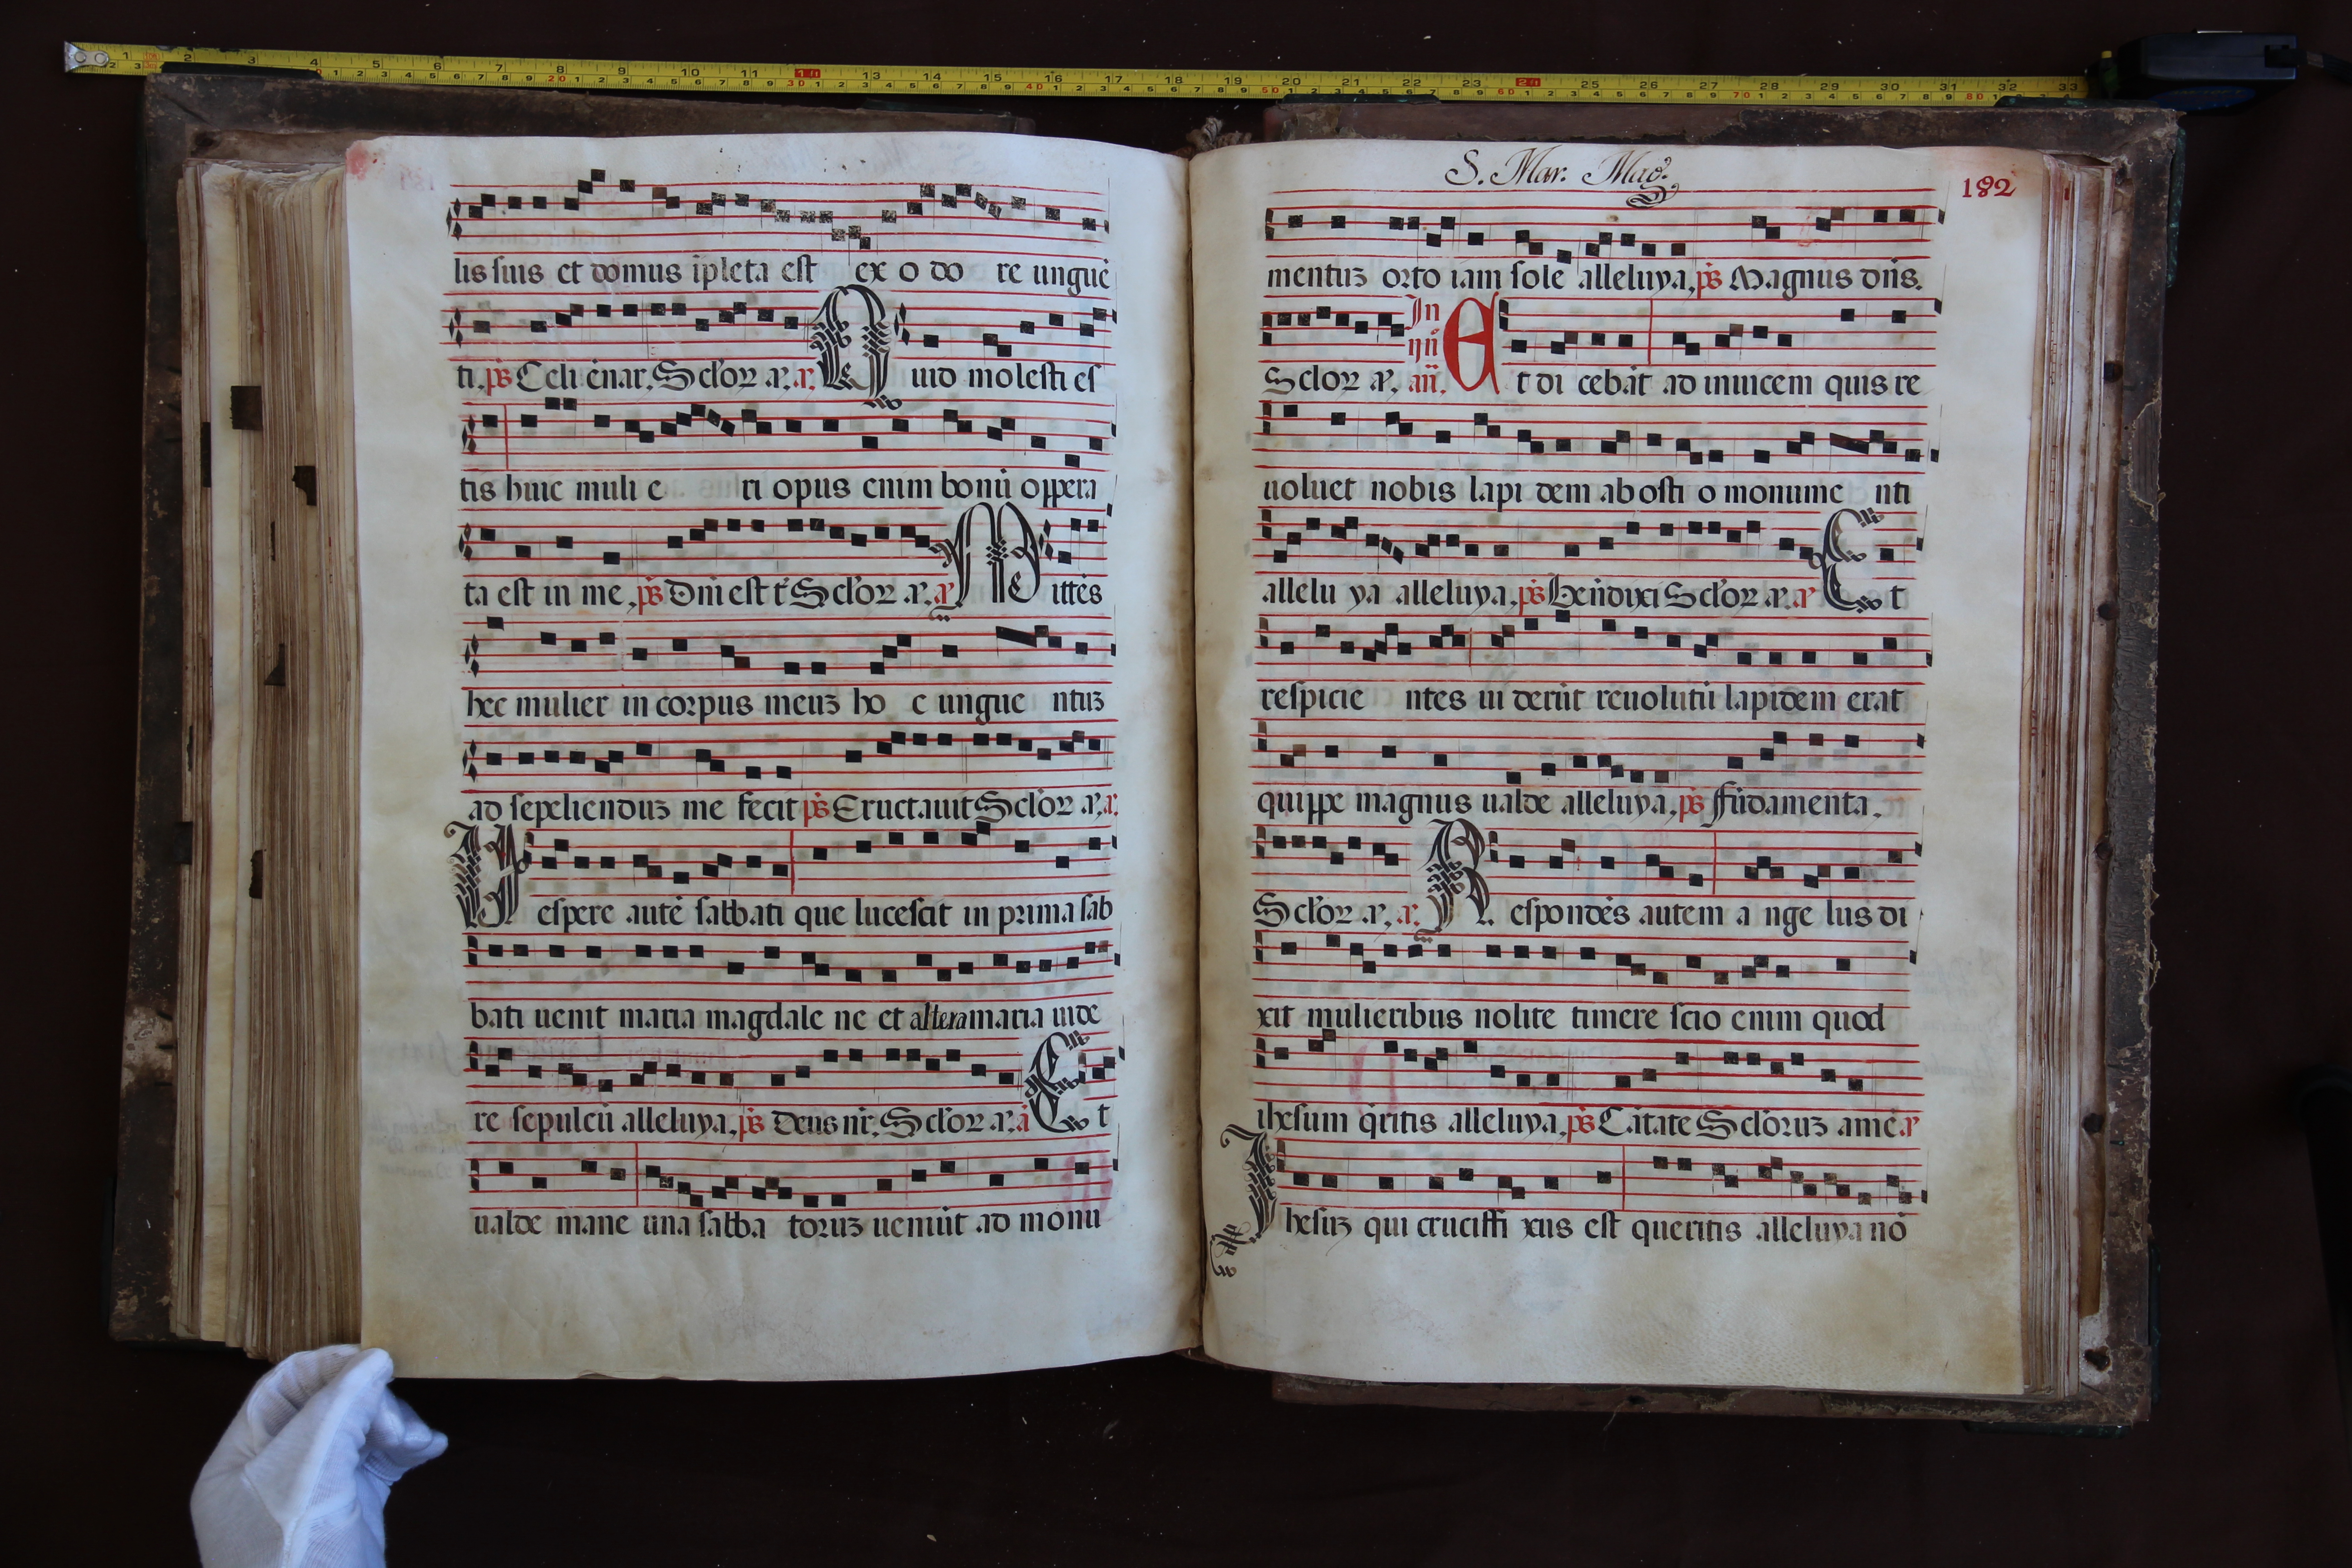 lis suis et domus īpleta est ex o do re unguē
ti, ps̄ Celi enar, Sclōꝝ a, a, Quid molesti es
tis huic muli e ri opus enim bonū oppera
ta est in me, ps̄ Dn̄i est t̄ Sclōꝝ a, a, Mittēs
hec mulier in corpus meuꝫ ho c ungue ntuꝫ
ad sepeliendūꝫ me fecit ps̄ Eructauit Sclōꝝ a, a,
Vespere autē sabbati que lucescit in prima sab
bati uenit maria magdale ne et altera maria uide
re sepulcū alleluya, ps̄ Deus nr̄, Sclōꝝ a, a Et
ualde mane una sabba toruꝫ ueniūt ad monu
S. Mar. Mag.
182
mentuꝫ orto iam sole alleluya, ps̄ Magnus dn̄s.
Sclōꝝ a, In ij n̄ an̄, Et di cebāt ad inuicem quis re
uoluet nobis lapi dem ab osti o monume nti
allelu ya alleluya, ps̄ Bēndixi Sclōꝝ a, a Et
respicie ntes ui derūt reuolutū lapidem erat
quippe magnus ualde alleluya, ps̄ Fūdamenta,
Sclōꝝ a, a, Respondēs autem a nge lus di
xit mulieribus nolite timere scio enim quod
ihesum q̄ritis alleluya, ps̄ Cātate Sclōruꝫ amē a
Ihesuꝫ qui cruciffi xus est queritis alleluya nō